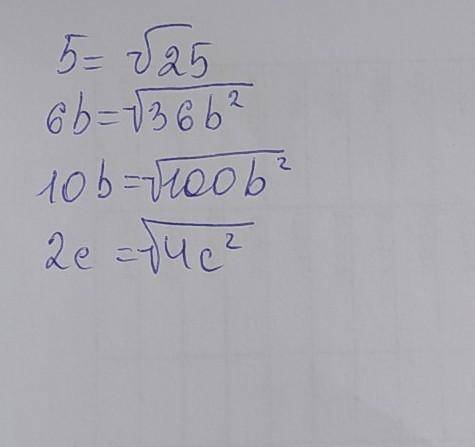 5 = √25
6b = √36b²
10b = √100b²
2c = √4c²